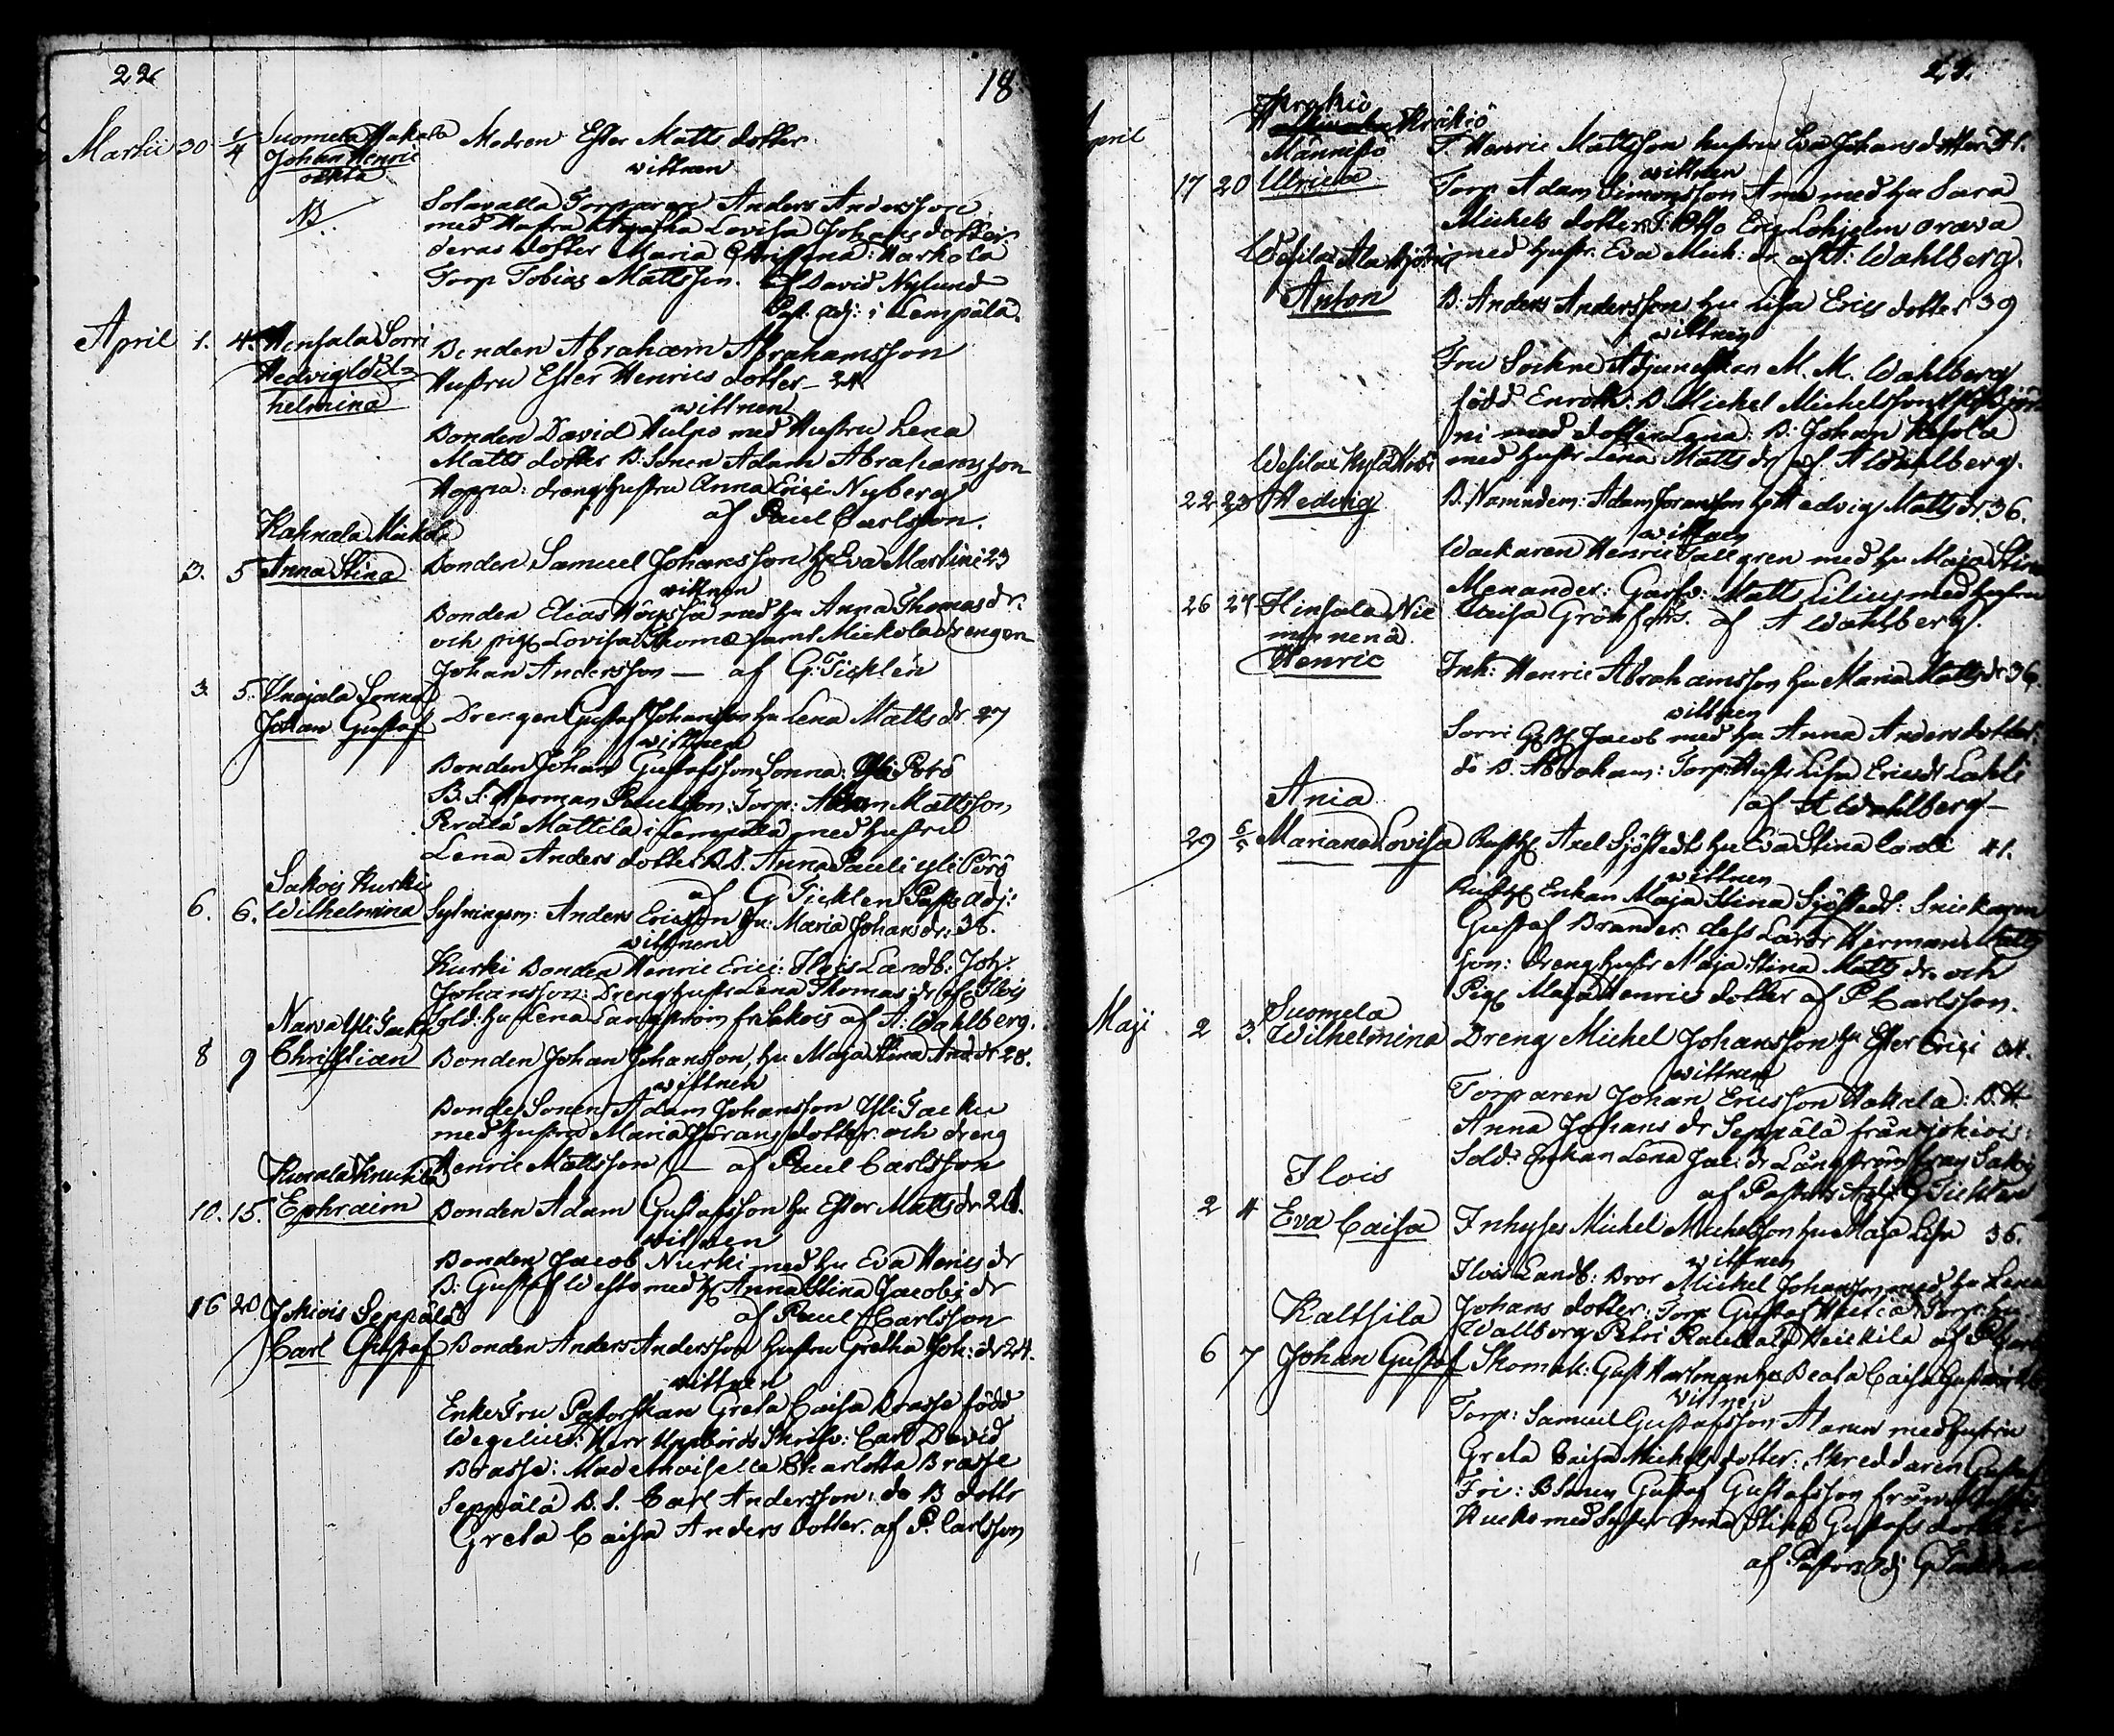 22
18
Martii 30 1/4 Suomela Hakala Modren Ester Matts dotter
Johan Henric wittnen
oäkta
NB Solavalla Torparen Anders Andersson
med Hustru Agatha Lovisa Johans dotter
deras dotter Maria Christina: Harhola
Torp Tobias Mattsson. af David Nylund
Past. Adj: i Lempälä.
April 1. 4. Honsala Sorri Bonden Abraham Abrahamsson
Hedvig Wil= Hustru Ester Henrics dotter - 24
helmina wittnen
Bonden David Hulpo med Hustru Lena
Matts dotter B: Sonen Adam Abrahamsson
Hoppa: dreng hustru Anna Erici Nyberg
af Paul Carlsson.
Kahnala Mickola
3. 5 Anna Stina Bonden Samuel Johansson H Eva Martini 23
wittnen
Bonden Elias Höyssä med hu Anna Thomas dr:
och pig Lovisa Thomæ samt Mickola drengen
Johan Andersson — af G: Ticklén
3. 5. Knajala Sonna
Johan Gustaf Drengen Gustaf Johansson hu Lena Matts dr 27
wittnen
Bonden Johan Gustafsson Sonna: Yli Pörö
B. S: Herman Paulsson: Torp: Adam Mattsson
Perälä Mattila i Lempälä med hustru
Lena Anders dotter B D. Anna Pauli Yli Pörö
af G Ticklen Past: Adj:
Sakois Kurki
6. 6. Wilhelmina Sytningsm: Anders Ericsson hu: Maria Johans dr: 38.
wittnen
Kurki Bonden Henric Erici: Ilois Landb: Joh:
Johansson: Dreng hustr Lena Thomas: dr af: Ilois
Sold: hu Lena Langström fr Sakois af A: Wahlberg.
Narva Yli Jacku
8 9 Christian Bonden Johan Johansson, hu Maja Stina And: dr 28.
wittnen
Bonde Sonen Adam Johansson Yli Jacku
med hustru Maria Jörans dotter: och dreng
Henric Mattsson — af Paul Carlsson
Kurala Knuutila
10. 15. Ephraim Bonden Adam Gustafsson hu Ester Matts dr 21.
wittnen
Bonden Jacob Nurki med hu Eva Henrics dr
B: Gustaf Westo med H Anna Stina Jacobs dr
af Paul Carlsson
16 20 Jokiois Seppälä
Carl Gustaf Bonden Anders Andersson hustru Gretha Joh: dr 24.
wittnen
Enke Fru Pastorskan Greta Caisa Brasse född
Wegelius: Herr Uppbörds Skrifv: Carl David
Brasse: Mademoiselle Charlotta Brasse
Seppälä B. S. Carl Andersson: do B dottr
Greta Caisa Anders dotter. af P. Carlsson
April Kräkiö
Männistö T Henric Mattsson hustru Eva Johans dotter 41.
wittnen
17 20 Ulrica Torp Adam Simonsson Ania med hu Sara
Michels dotter T: Otto Eric Lohjelm Orava
med hustr: Eva Mich: dr af A: Wahlberg.
Wesilax Ala Björni
Anton B: Anders Andersson hu Lisa Erics dotter 39
wittnen
Fru Sockne Adjunctskan M. M. Wahlberg
född Enroth: B Michel Michelsson
ni med dotter Lena: B: Johan
med hustr Lena Matts dr af A Wahlberg.
Wesilax Kylä
22 23 Hedvig B: Nämndem: Adam Joransson h Hedvig Matts dr. 36.
wittnen
Wackaren Henric Tallgren med hu Maja Stina
Menander: Garfv: Matts Lilius med hustru
Caisa Grönfors. af A Wahlberg.
26 27 Hinsala Nie
mennenä
Henric Inh: Henric Abrahamsson hu Maria Matts dr 36.
wittnen
Sorri Gstg Jacob med hu Anna Anders dotter:
do B. Abraham: Torp: Hustr Lisa Erics dr Lahti
af A Wahlberg —
Ania
29 6/5 Mariana Lovisa Rusth Axel Sjöstedt hu Eva Stina 41.
wittnen
Rusth Enkan Maja Stina Sjöstedt: Snickaren
Gustaf Brander: dess Lärdr Herman Matts
son: dreng hustr Maja Stina Matts dr. och
Pig Maja Henrics dotter af P Carlsson.
Maji 2 3. Suomela
Wilhelmina Dreng Michel Johansson hu Ester Erici 34.
wittnen
Torparen Johan Ericsson Hakala: B. H.
Anna Johans dr Seppälä från Jokiois:
Sold: Enkan Lena Jac: dr Långström från Sakois
af Pastors Adj: G Ticklen
Ilois
2 4 Eva Caisa Inhyses Michel Michelsson hu Maja Lisa 36.
wittnen
Ilois Landb: Bror Michel Johansson med hu Lena
Johans dotter: Torp Gustaf Torp: hu
Wallborg Petri Heickilä af P
Kaltsila
6 7 Johan Gustaf Skomak: Gust Hartman hu Beata Caisa
Wittnen
Torp: Samuel Gustafsson Alanen med hustru
Greta Caisa Michels dotter: Skreddaren Gustaf
Fri: B Sonen Gustaf Gustafsson från
Kucko med Syster Anna Stina Gustafs dotter
af Pastors Adj G Ticklen